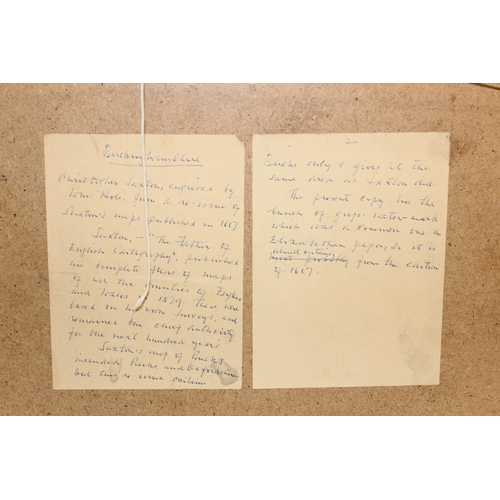 Buckinghamshire
Christopher Saxton, engraved by
Wm Hole. from a re-issue of
Saxton's maps published in 1607
Saxton, - "The Father of
English Cartography", published
complete of maps
all the counties of England
and Wales in 1579. These were
based on his own surveys, and
remained the chief authority
for the next hundred years
Saxton's map of Bucks
included Berks and Oxfordshire
but this is
2
Bucks only & gives it the
same area as Saxton did
The present copy has the
bunch of grapes water mark
which was a common one in
Elizabethan paper, so it is
almost certainly
most probably from the edition
of 1607.